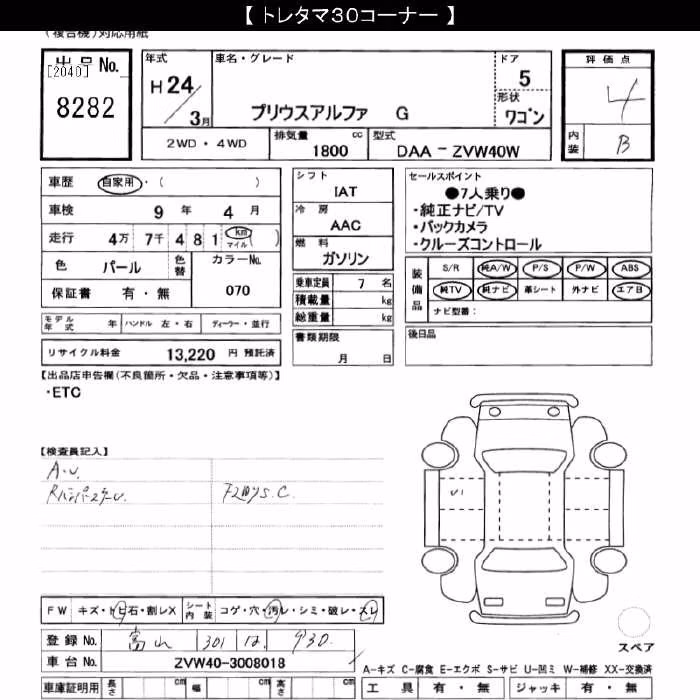 【 トレタマ30コーナー 】
(複合機)対応用紙
出品No.
[2040]
8282
年式
H24/3月
車名・グレード
プリウスアルファ G
ドア
5
形状
ワゴン
評価点
4
内装
B
2WD・4WD
排気量 cc
1800
型式
DAA-ZVW40W
車歴 自家用・( )
車検 9年 4月
走行 4万7千481 km マイル ( )
色 パール 色替 カラーNo. 070
保証書 有・無
モデル年式 年 ハンドル 左・右 ディーラー・並行
リサイクル料金 13,220 円 預託済
シフト
IAT
冷房
AAC
燃料
ガソリン
乗車定員 7 名
積載量 kg
総重量 kg
書類期限
月 日
セールスポイント
●7人乗り●
・純正ナビ/TV
・バックカメラ
・クルーズコントロール
装備品
S/R 純A/W P/S P/W ABS
純TV 純ナビ 革シート 外ナビ エアB
ナビ型番:
後日品
【出品店申告欄(不良箇所・欠品・注意事項等)】
・ETC
【検査員記入】
A.U.
U1
FW キズ・トビ石・割レX シート内装 コゲ・穴・汚レ・シミ・破レ・スレ
登録No. 富山 301 930
車台No. ZVW40-3008018
車庫証明用 長さ cm 幅 cm 高さ cm
スペア
A-キズ C-腐食 E-エクボ S-サビ U-凹ミ W-補修 XX-交換済
工具 有・無 ジャッキ 有・無